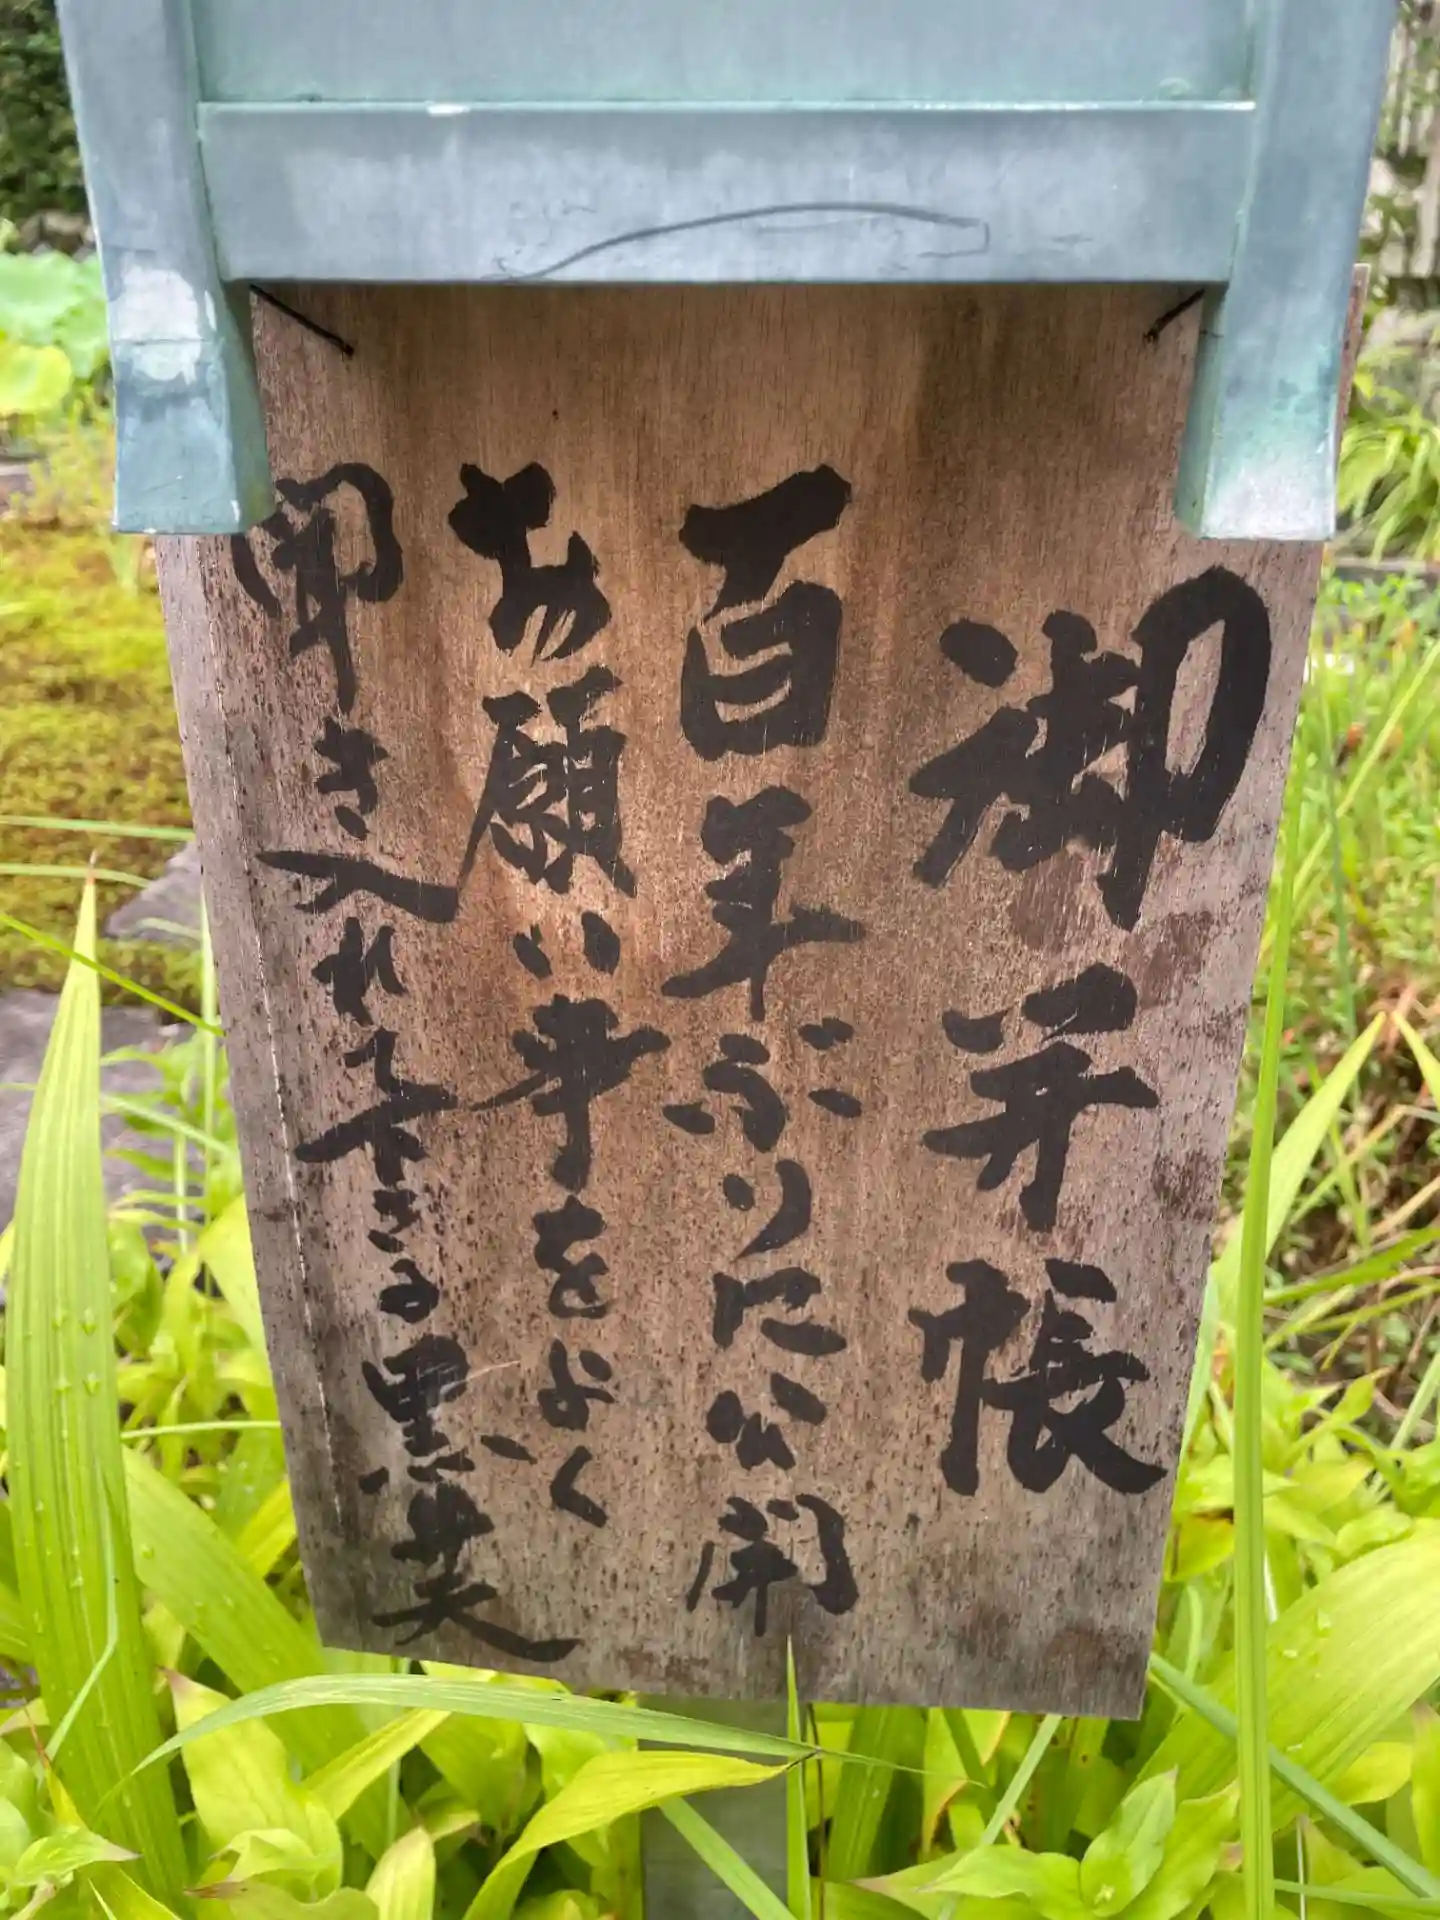 御开帳
百年ぶりに公開
お願い事をよく
聞き入れて下さる黒夫